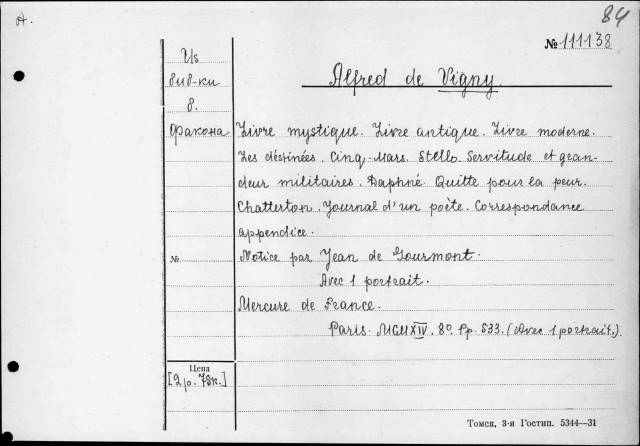 A.
84
№ 111138
Из
биб-ки
в.
Фракона
Alfred de Vigny.
Livre mystique. Livre antique. Livre moderne.
Les déstinées. Cinq-Mars. Stello. Servitude et gran-
deur militaires. Daphné. Quitte pour la peur.
Chatterton. Journal d'un poète. Correspondance
appendice.
№
Notice par Jean de Gourmont.
Avec 1 portrait.
Mercure de France.
Paris. MCMXIV. 8º. Pp. 533. (Avec 1 portrait.)
Цена
[2 р. 73к.]
Томск, 3-я Гостип. 5344—31